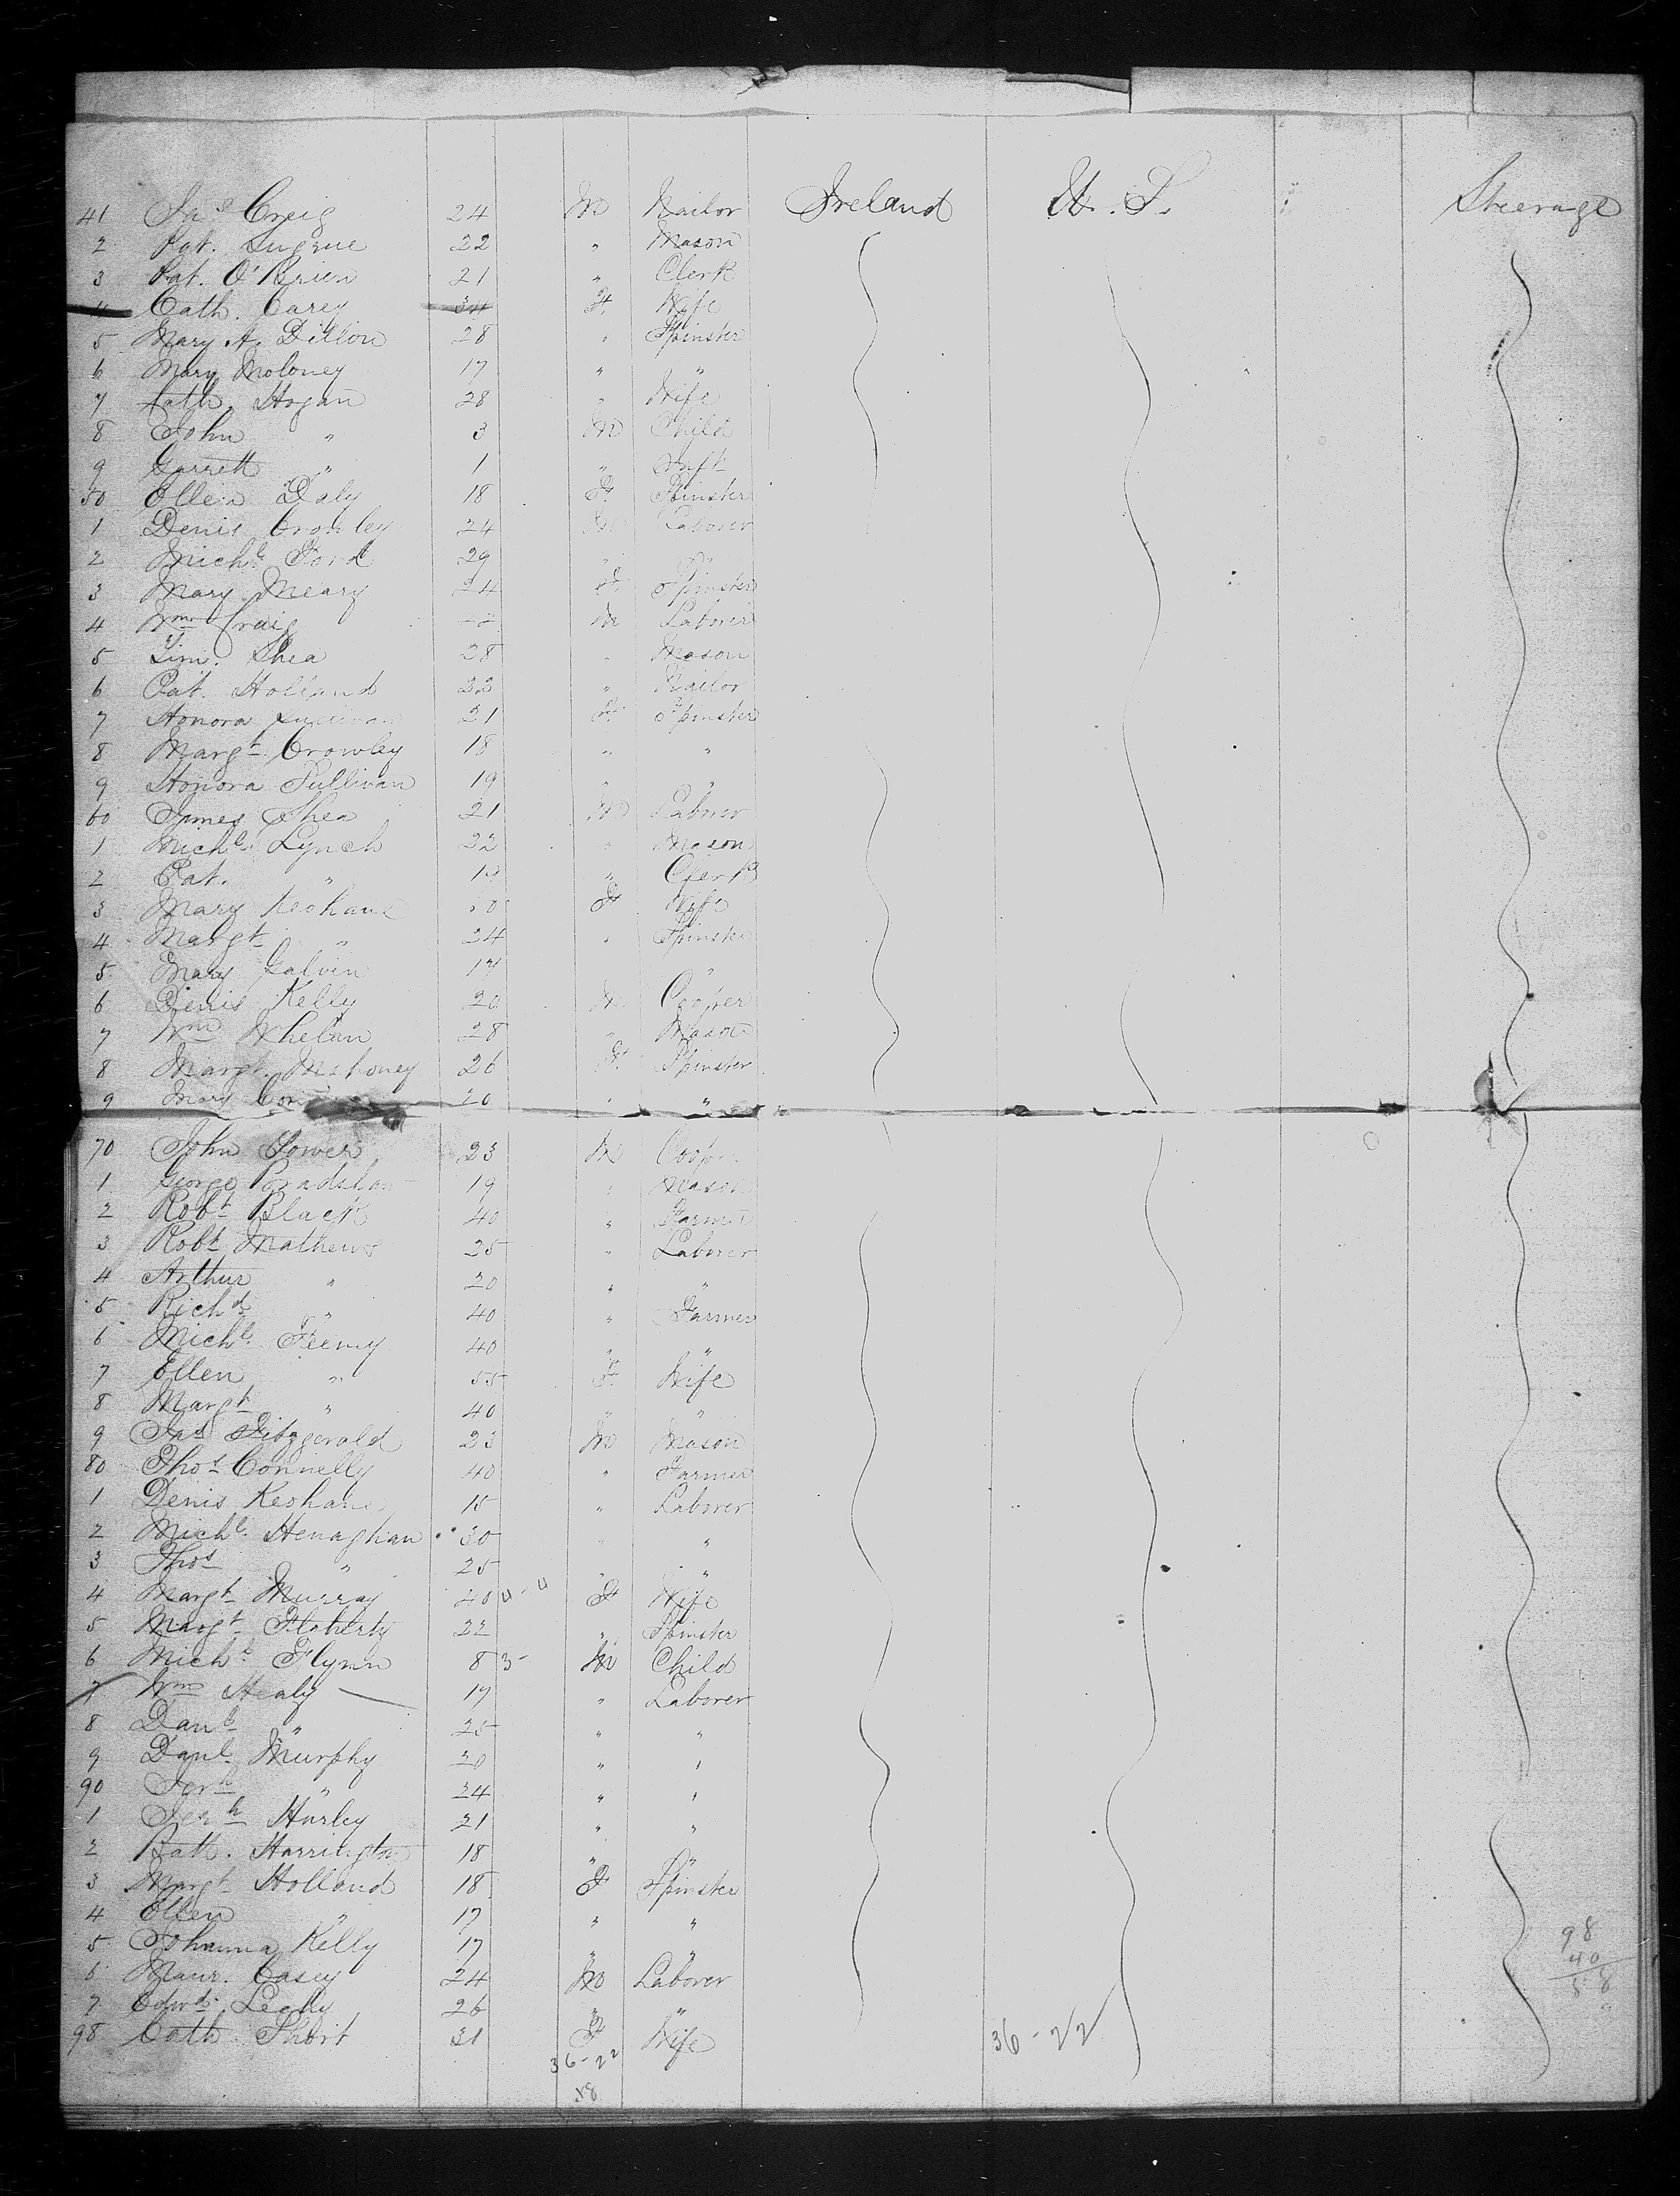 41 Jas Creig 24 M Nailor Ireland U. S. Steerage
2 Pat. Sugrue 22 " Mason
3 Pat. O'Brien 21 " Clerk
4 Cath. Carey 34 F. Wife
5 Mary A. Dillon 28 " Spinster
6 Mary Moloney 17 " "
7 Cath. Hogan 28 " Wife
8 John " 3 M Child
9 Garrett " 1 " Inft
50 Ellen Daly 18 F. Spinster
1 Denis Crowley 24 M Laborer
2 Michl. Ford 29 " "
3 Mary Meary 24 F. Spinster
4 Wm Craig M Laborer
5 Tim. Shea 28 " Mason
6 Pat. Holland 22 " Nailor
7 Honora 21 F. Spinster
8 Margt. Crowley 18 " "
9 Honora Sullivan 19 " "
60 James Shea 21 M Laborer
1 Michl. Lynch 22 " Mason
2 Pat. " " Clerk
3 Mary Keohane F Wife
4 Margt " 24 " Spinster
5 Mary Galvin 17 "
6 Denis Kelly 20 M Cooper
7 Wm Whelan 28 " Mason
8 Margt. Mahoney 26 F. Spinster
9 Mary 20 " "
70 John Power 23 M Cooper
1 George Bradshaw 19 " Mason
2 Robt Black 40 " Farmer
3 Robt Mathews 25 " Laborer
4 Arthur " 20 " "
5 Richd " 40 " Farmer
6 Michl. Feeny 40 " "
7 Ellen " 55 F. Wife
8 Margt " 40 " "
9 Jas Fitzgerald 23 M Mason
80 Thos Connelly 40 " Farmer
1 Denis Keohane 15 " Laborer
2 Michl. Henaghan 30 " "
3 Thos " 25 " "
4 Margt Murray 40 F Wife
5 Margt Flaherty 22 " Spinster
6 Michl Flynn 8 3 M Child
7 Wm Healy 19 " Laborer
8 Danl " 25 " "
9 Danl. Murphy 20 " "
90 Jerh " 24 " "
1 Jerh Hurley 21 " "
2 Path. Harrington 18 " "
3 Margt Holland 18 F Spinster
4 Ellen " 17 " "
5 Johanna Kelly 17 " "
6 Maur. Casey 24 M Laborer
7 Edwd. Leahy 26 " "
98 Cath. Short 31 F Wife
36-22 36-22
18
98
40
58